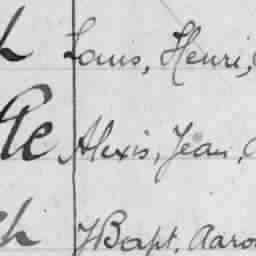 Louis, Henri,
Alexis, Jean,
JBapt. Aaro